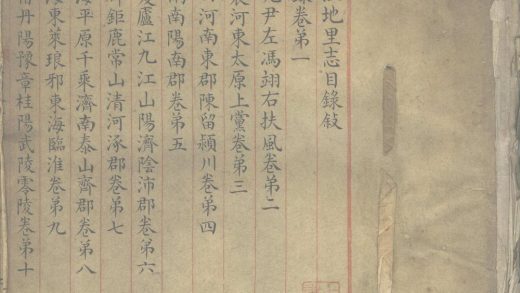 地里志目錄敘
卷第一
尹左馮翊右扶風卷第二
農河東太原上黨卷第三
河南東郡陳留潁川卷第四
南南陽南郡卷第五
廬江九江山陽濟陰沛郡卷第六
鉅鹿常山清河涿郡卷第七
海平原千乘濟南泰山齊郡卷第八
海東萊琅邪東海臨淮卷第九
丹陽豫章桂陽武陵零陵卷第十